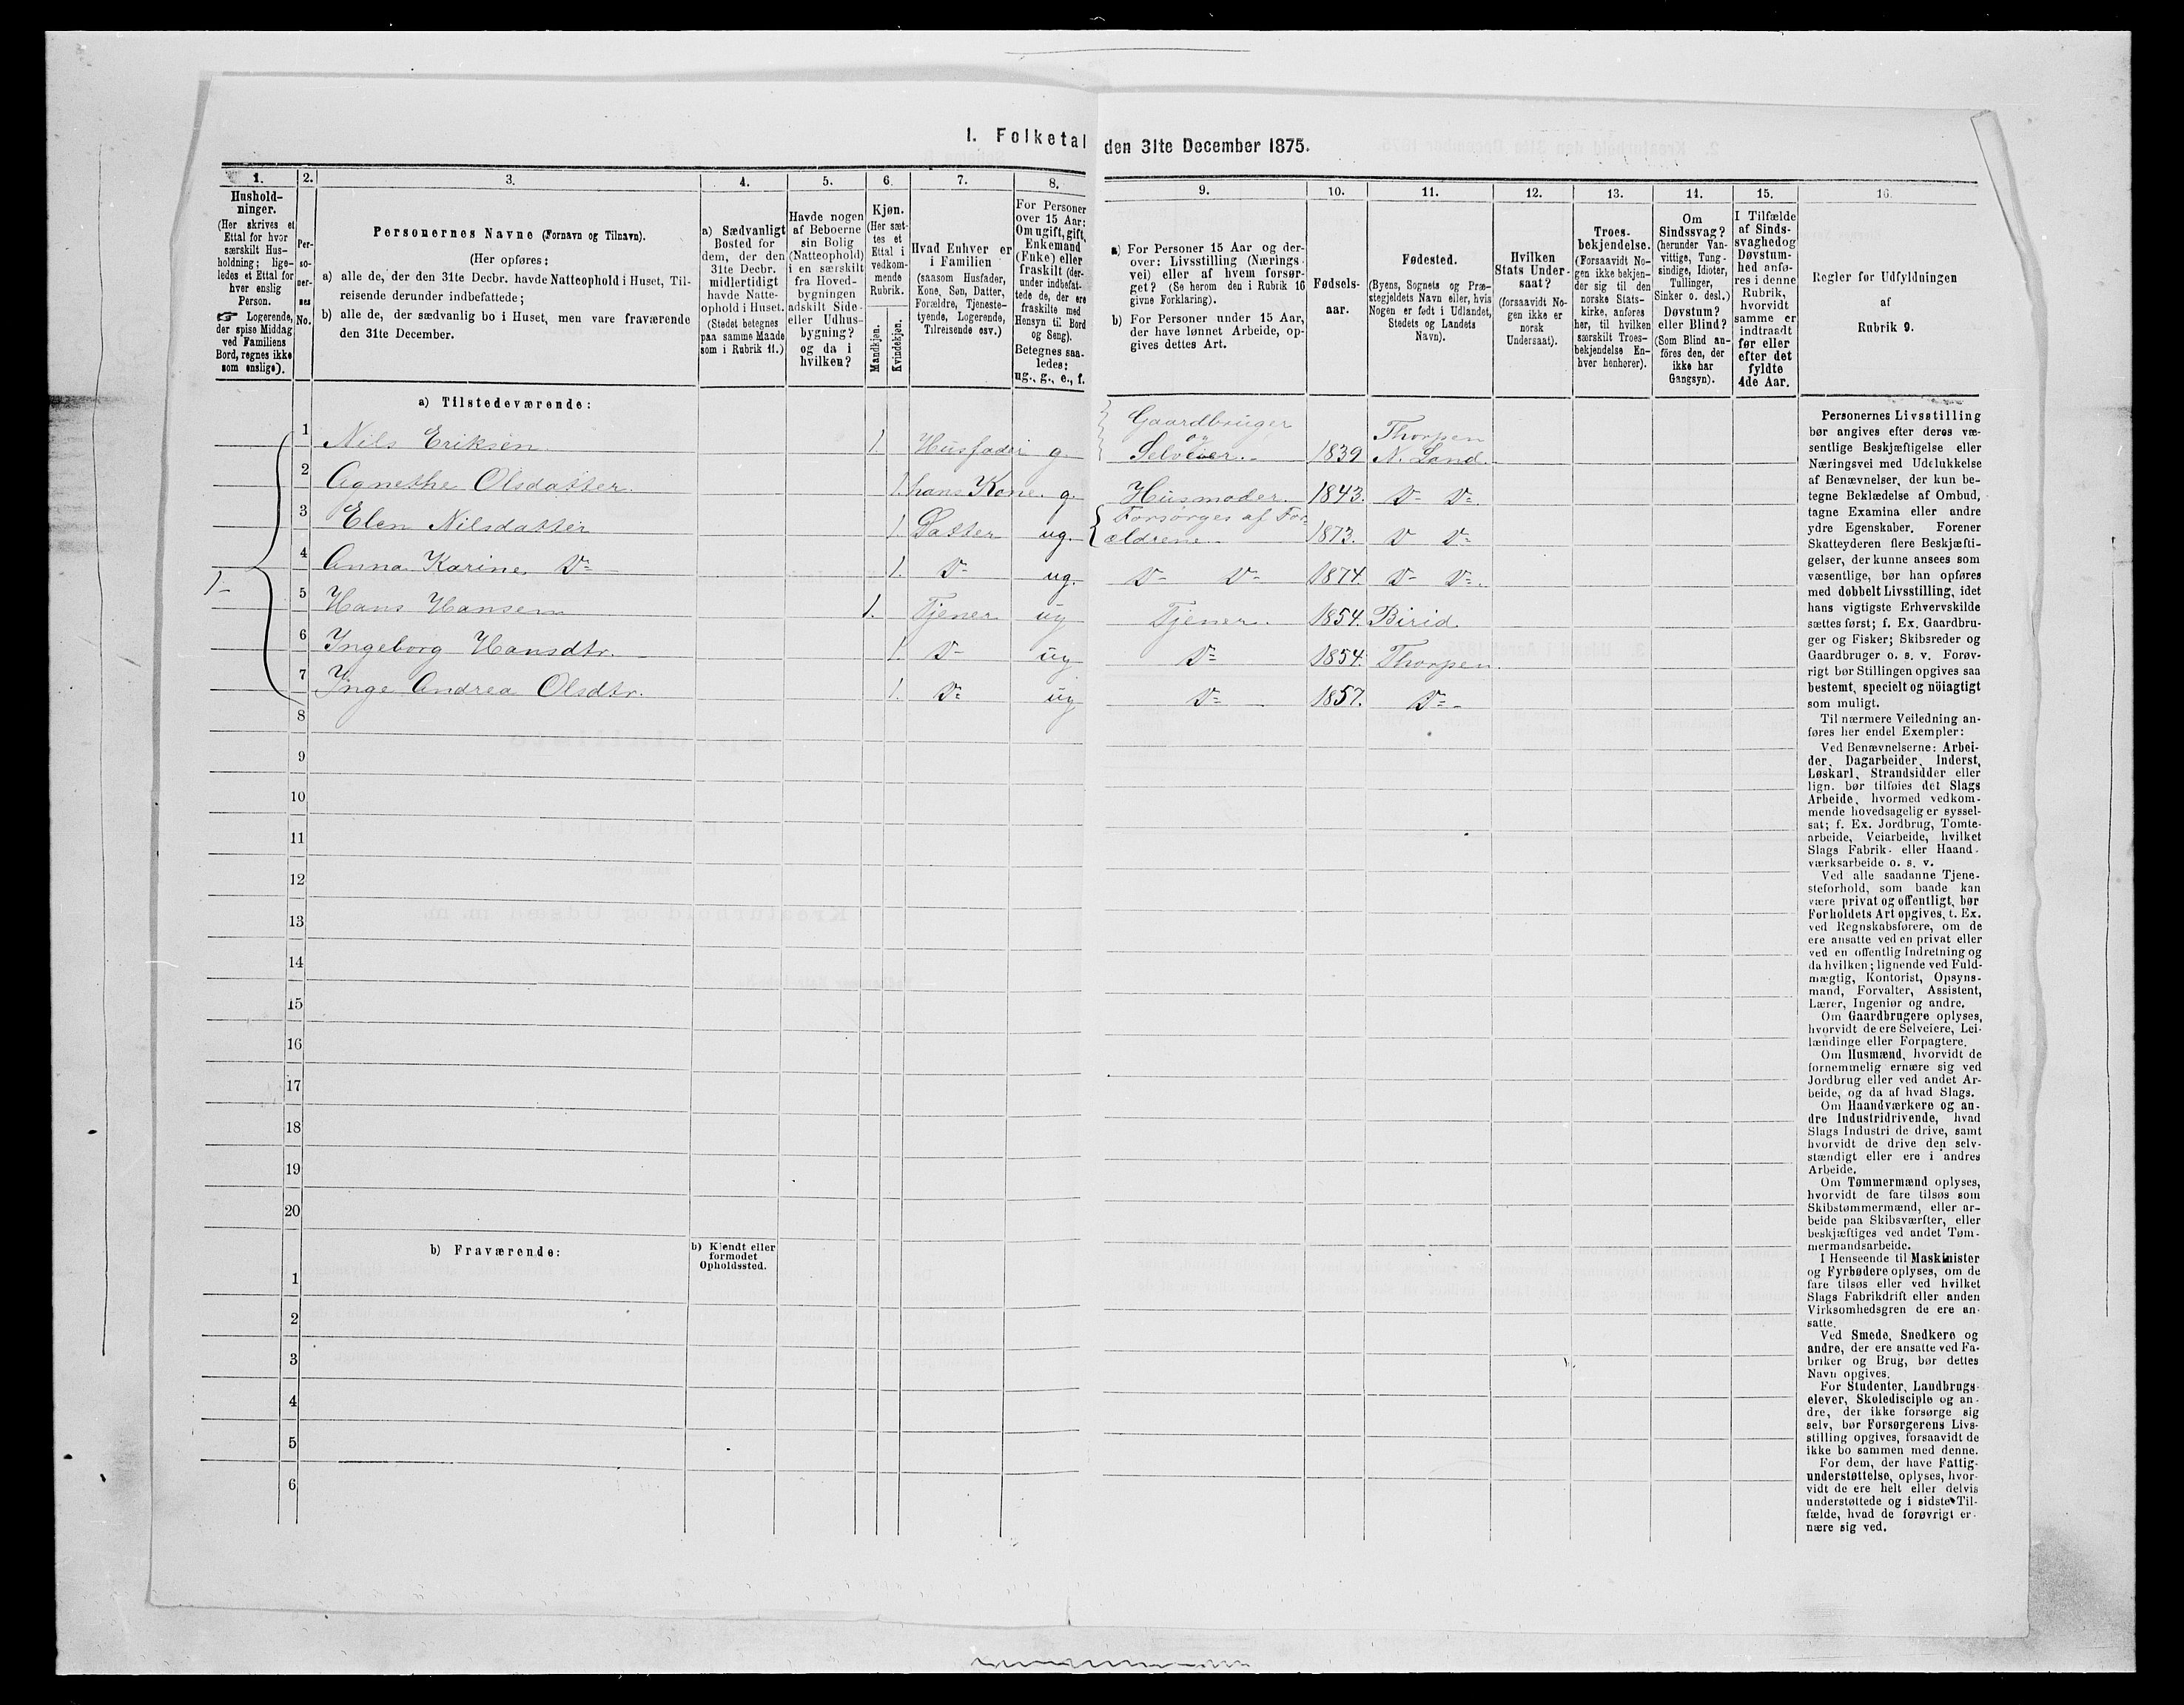 I. Folketal den 31te December 1875.
1.
Hushold-
ninger.
(Her skrives et
Ettal for hver
særskilt Hus-
holdning; lige-
ledes et Ettal for
hver enslig
Person.
☞ Logerende,
der spise Middag
ved Familiens
Bord, regnes ikke
som enslige).
2.
Per-
so-
ner-
nes
No.
3.
Personernes Navne (Fornavn og Tilnavn).
(Her opføres:
a) alle de, der den 31te Decbr. havde Natteophold i Huset, Til-
reisende derunder indbefattede;
b) alle de, der sædvanlig bo i Huset, men vare fraværende
den 31te December.
4.
a) Sædvanligt
Bosted for
dem, der den
31te Decbr.
midlertidigt
havde Natte-
ophold i Huset.
(Stedet betegnes
paa samme Maade
som i Rubrik 11.)
5.
Havde nogen
af Beboerne
sin Bolig
(Natteophold)
i en særskilt
fra Hoved-
bygningen
adskilt Side-
eller Udhus-
bygning?
og da i
hvilken?
6.
Kjøn.
(Her sæt-
tes et
Ettal i
vedkom-
mende
Rubrik.
Mandkjøn.
Kvindekjøn.
7.
Hvad Enhver er
i Familien
(saasom Husfader,
Kone, Søn, Datter,
Forældre, Tjeneste-
tyende, Logerende,
Tilreisende osv.)
8.
For Personer
over 15 Aar:
Om ugift, gift,
Enkemand
(Enke) eller
fraskilt (der-
under indbefat-
tede de, der ere
fraskilte med
Hensyn til Bord
og Seng).
Betegnes saa-
ledes:
ug., g., e., f.
9.
a) For Personer 15 Aar og der-
over: Livsstilling (Nærings-
vei) eller af hvem forsør-
get? (Se herom den i Rubrik 16
givne Forklaring).
b) For Personer under 15 Aar,
der have lønnet Arbeide, op-
gives dettes Art.
10.
Fødsels-
aar.
11.
Fødested.
(Byens, Sognets og Præ-
stegjeldets Navn eller, hvis
Nogen er født i Udlandet,
Stedets og Landets
Navn).
12.
Hvilken
Stats Under-
saat?
(forsaavidt No-
gen ikke er
norsk
Undersaat).
13.
Troes-
bekjendelse.
(Forsaavidt No-
gen ikke bekjen-
der sig til den
norske Stats-
kirke, anføres
her, til hvilken
særskilt Troes-
bekjendelse En-
hver henhører).
14.
Om
Sindssvag?
(herunder Van-
vittige, Tung-
sindige, Idioter,
Tullinger,
Sinker o. desl.)
Døvstum?
eller Blind?
(Som Blind an-
föres den, der
ikke har
Gangsyn).
15.
I Tilfælde
af Sinds-
svaghed og
Døvstum-
hed anfø-
res i denne
Rubrik,
hvorvidt
samme er
indtraadt
før eller
efter det
fyldte
4de Aar.
16.
Regler for Udfyldningen
af
Rubrik 9.
a) Tilstedeværende:
1 Nils Eriksen 1. Husfader g. Gaardbruger og Selveier. 1839 Thorpen N. Land.
2 Agnethe Olsdatter. 1. hans Kone. g. Husmoder. 1843. D- D-
3 Elen Nilsdatter 1. Datter ug. Forsørges af For-ældrene. 1873. D D-
4 Anna Karine D- 1. D- ug. D- D- 1874. D- D-.
1-
5 Hans Hansen 1. Tjener ug Tjener. 1854. Birid.
6 Ingeborg Hansdtr. 1. D- ug D- 1854. Thorpen.
7 Inge Andrea Olsdtr. 1. D- ug D- 1857. D-
8
9
10
11
12
13
14
15
16
17
18
19
20
b) Fraværende:
b) Kjendt eller
formodet
Opholdssted.
1
2
3
4
5
6
Personernes Livsstilling
bør angives efter deres væ-
sentlige Beskjæftigelse eller
Næringsvei med Udelukkelse
af Benævnelser, der kun be-
tegne Beklædelse af Ombud,
tagne Examina eller andre
ydre Egenskaber. Forener
Skatteyderen flere Beskjæfti-
gelser, der kunne ansees som
væsentlige, bør han opføres
med dobbelt Livsstilling, idet
hans vigtigste Erhvervskilde
sættes først; f. Ex. Gaardbru-
ger og Fisker; Skibsreder og
Gaardbruger o. s. v. Forøv-
rigt bør Stillingen opgives saa
bestemt, specielt og nöiagtigt
som muligt.
Til nærmere Veiledning an-
føres her endel Exempler:
Ved Benævnelserne: Arbei-
der, Dagarbeider, Inderst,
Løskarl, Strandsidder eller
lign. bør tilføies det Slags
Arbeide, hvormed vedkom-
mende hovedsagelig er syssel-
sat; f. Ex. Jordbrug, Tomte-
arbeide, Veiarbeide, hvilket
Slags Fabrik- eller Haand-
værksarbeide o. s. v.
Ved alle saadanne Tjene-
steforhold, som baade kan
være privat og offentligt, bør
Forholdets Art opgives, t. Ex.
ved Regnskabsførere, om de
ere ansatte ved en privat eller
ved en offentlig Indretning og
da hvilken; lignende ved Fuld-
mægtig, Kontorist, Opsyns-
mand, Forvalter, Assistent,
Lærer, Ingeniør og andre.
Om Gaardbrugere oplyses,
hvorvidt de ere Selveiere, Lei-
lændinge eller Forpagtere.
Om Husmænd, hvorvidt de
fornemmelig ernære sig ved
Jordbrug eller ved andet Ar-
beide, og da af hvad Slags.
Om Haandværkere og an-
dre Industridrivende, hvad
Slags Industri de drive, samt
hvorvidt de drive den selv-
stændigt eller ere i andres
Arbeide.
Om Tømmermænd oplyses,
hvorvidt de fare tilsøs som
Skibstømmermænd, eller ar-
beide paa Skibsværfter, eller
beskjæftiges ved andet Tøm-
mermandsarbeide.
I Henseende til Maskinister
og Fyrbødere oplyses, om de
fare tilsøs eller ved hvilket
Slags Fabrikdrift eller anden
Virksomhedsgren de ere an-
satte.
Ved Smede, Snedkere og
andre, der ere ansatte ved Fa-
briker og Brug, bør dettes
Navn opgives.
For Studenter, Landbrugs-
elever, Skoledisciple og an-
dre, der ikke forsørge sig
selv, bør Forsørgerens Livs-
stilling opgives, forsaavidt de
ikke bo sammen med denne.
For dem, der have Fattig-
understøttelse, oplyses, hvor-
vidt de ere helt eller delvis
understøttede og i sidste Til-
fælde, hvad de forøvrigt er-
nære sig ved.